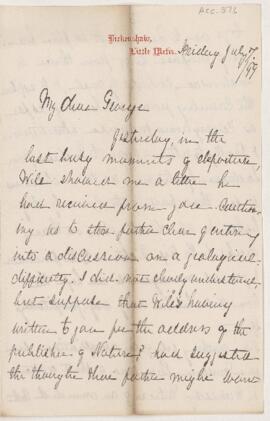 Acc. 576
Birkenshaw,
Little Metis.
Friday July 7/99
My dear George
Yesterday, in the
last busy moments of departure,
Will showed me a letter he
had received from you.
my us to stop father
into a discussion on a geological
difficulty. I did not clearly understand,
but suppose that Will's having
written to you for the address of the
publisher of "Nature" had suggested
the thought that father might want